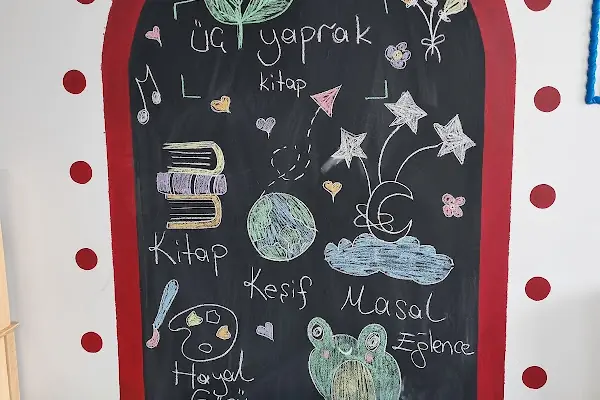 üç yaprak
kitap
Kitap
Keşif
Masal
Eğlence
Hayal